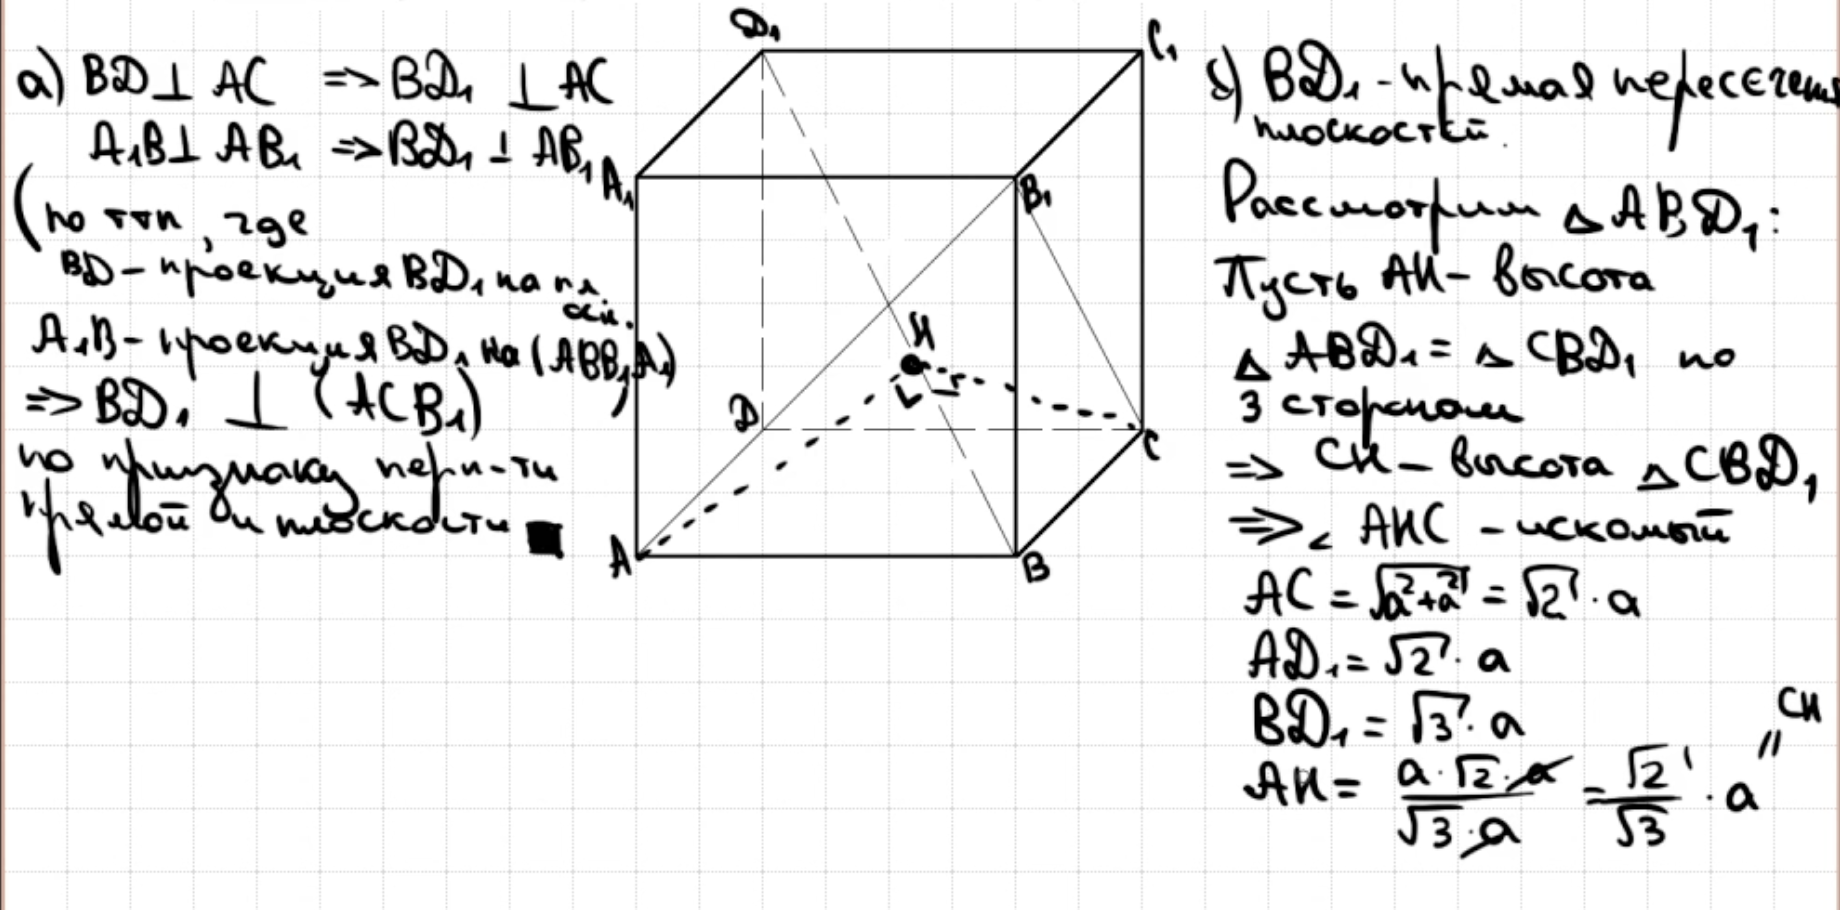 а) BD ⊥ AC => BD₁ ⊥ AC
A₁B ⊥ AB₁ => BD₁ ⊥ AB₁
(по ттп, где
BD - проекция BD₁ на пл.
осн.
A₁B - проекция BD₁ на (ABB₁A₁)
=> BD₁ ⊥ (ACB₁) )
по признаку перп-ти
прямой и плоскости ■
D₁
C₁
A₁
B₁
H
D
C
A
B
б) BD₁ - прямая пересечения
плоскостей.
Рассмотрим △ABD₁:
Пусть AH - высота
△ABD₁ = △CBD₁ по
3 сторонам
=> CH - высота △CBD₁
=> ∠AHC - искомый
AC = √(a²+a²) = √2 · a
AD₁ = √2 · a
BD₁ = √3 · a
AH = (a · √2 · a)/(√3 · a) = √2/√3 · a = CH